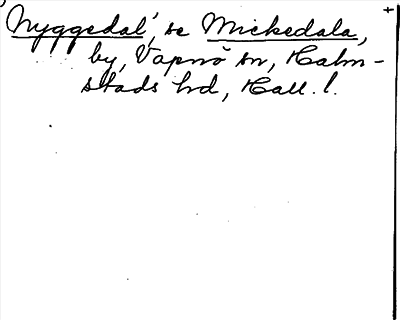 'Nyggedal', se Mickedala,
by, Vapnö sn, Halm-
stads hd, Hall. l.